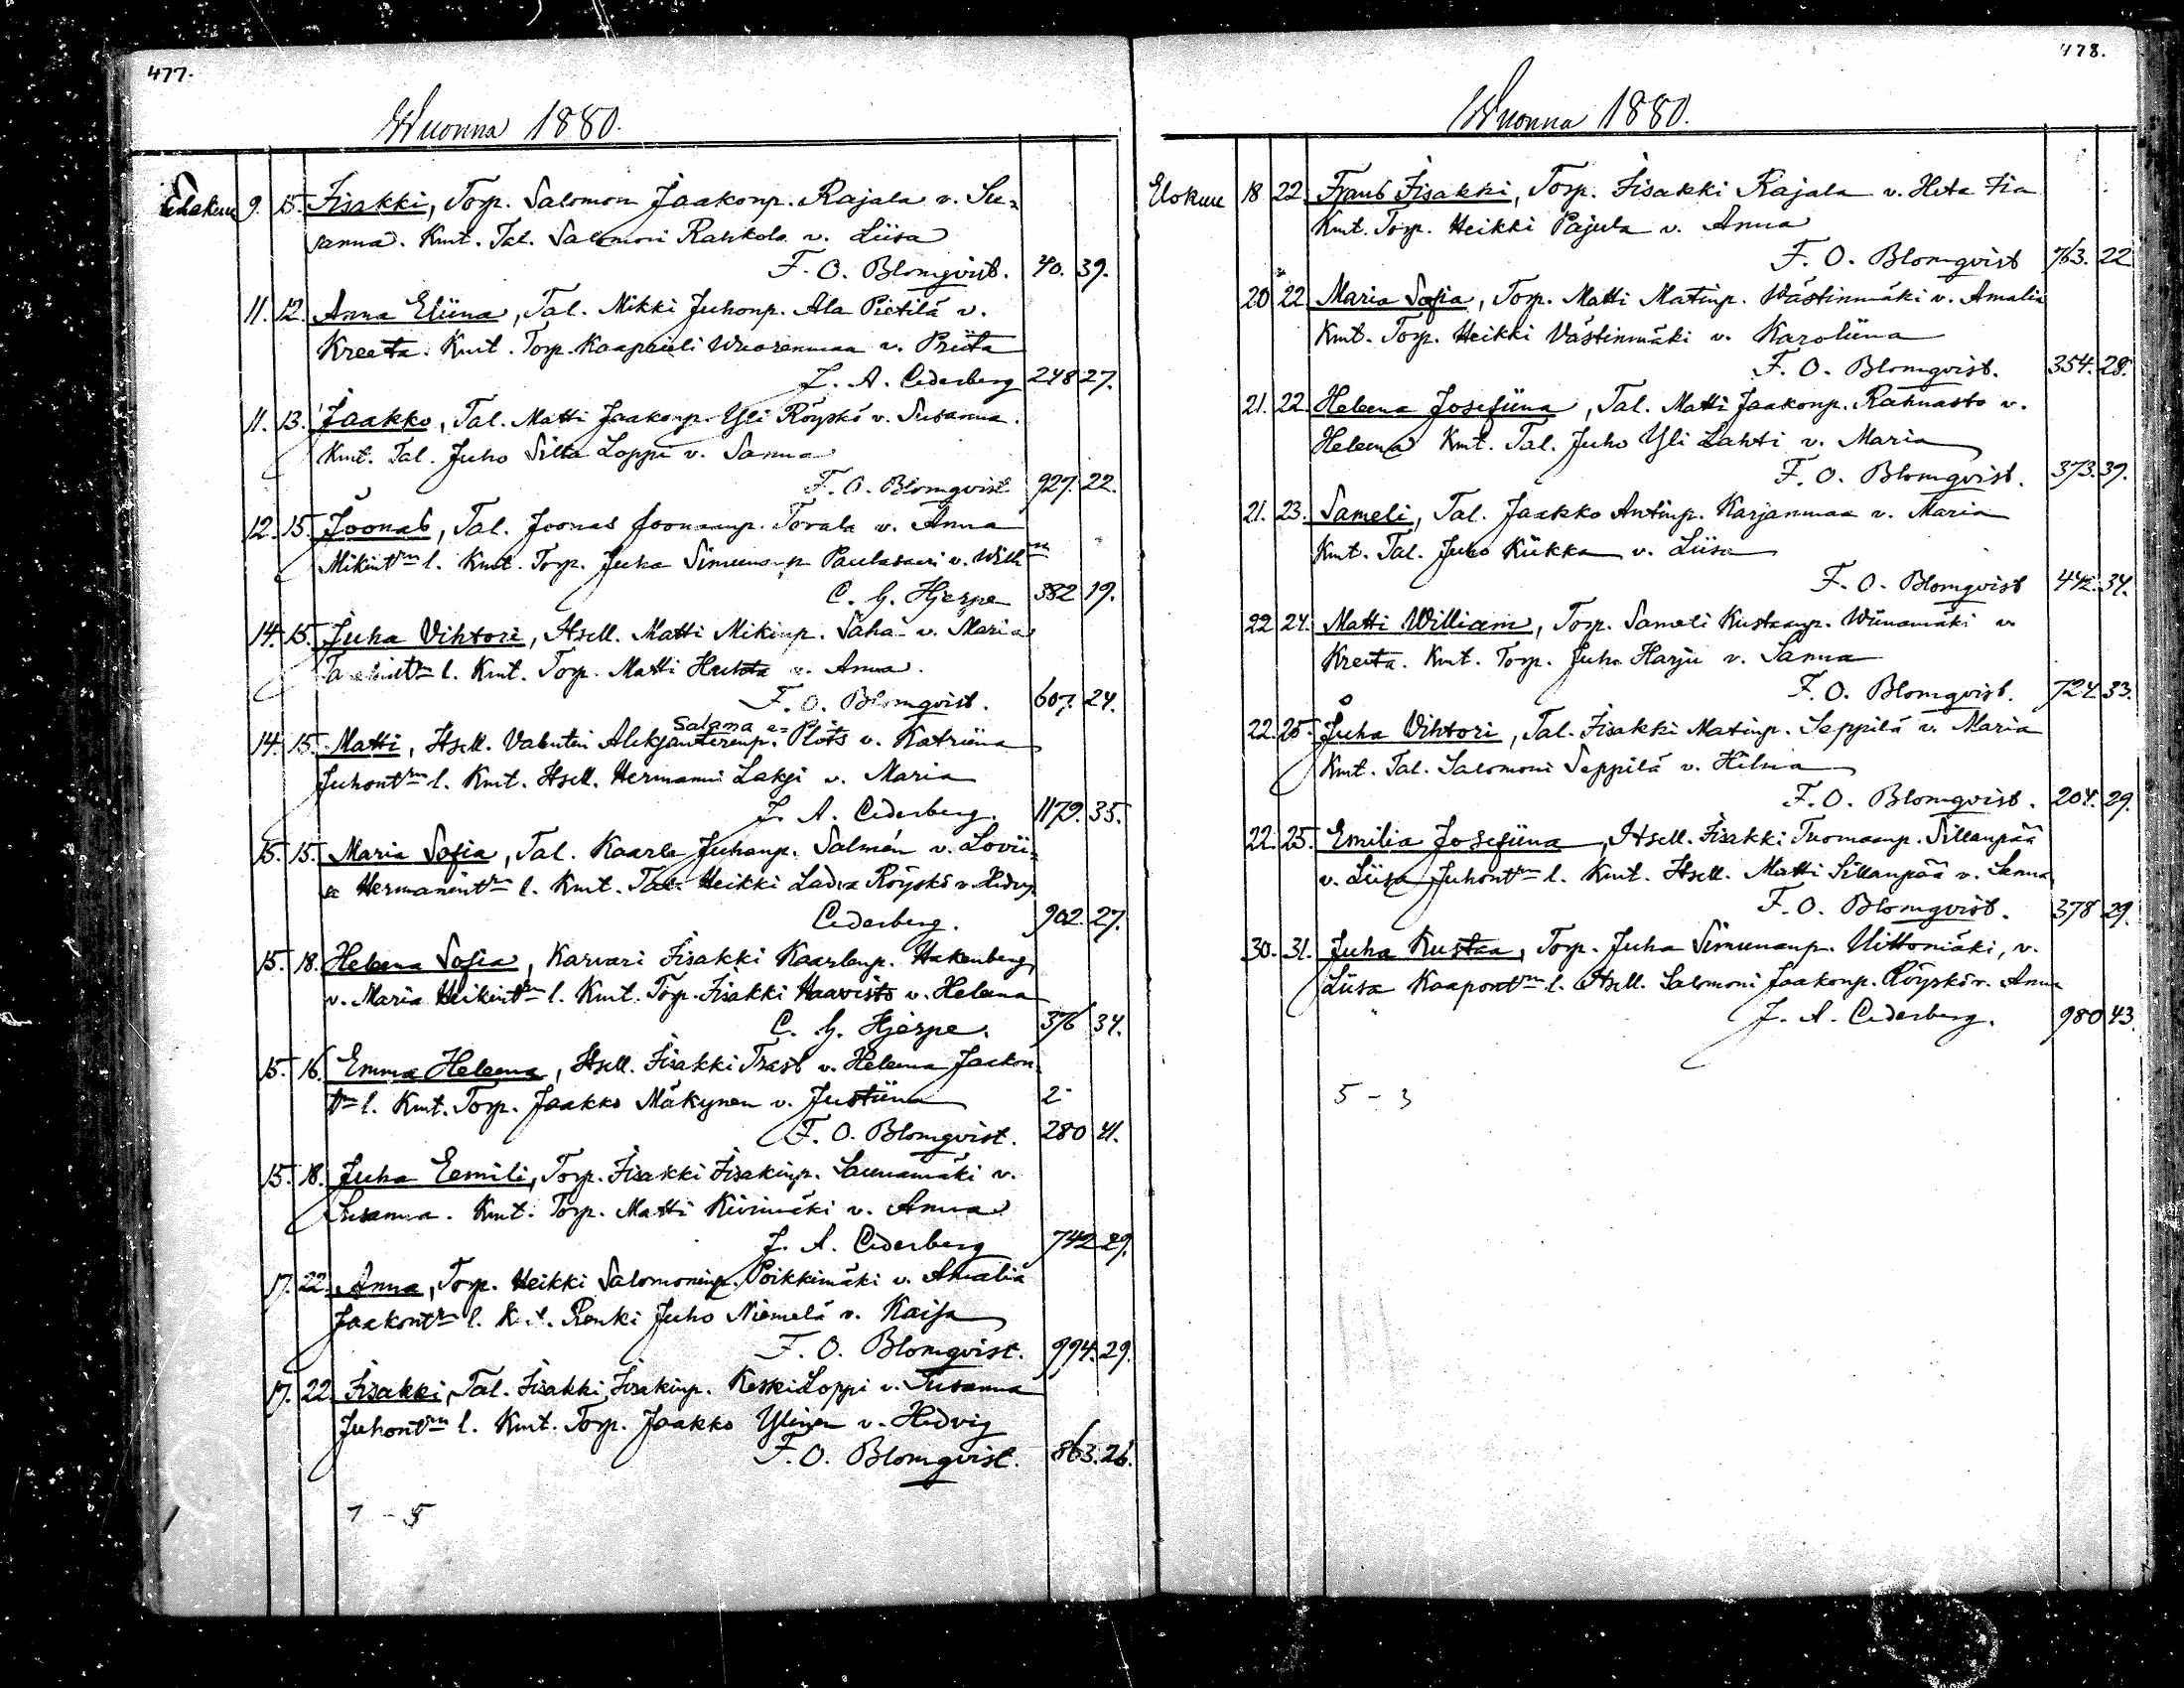 477.
Wuonna 1880.
Elokuu 9. 15. Iisakki, Torp. Salomon Jaakonp. Rajala v. Su=
sanna. Kmt. Tal. Salomoni Rahkola v. Liisa
F. O. Blomqvist. 40. 39.
11. 12. Anna Eliina, Tal. Mikki Juhonp. Ala Pietilä v.
Kreeta. Kmt. Torp. Kaaprieli Wuorenmaa v. Priita
J. A. Cederberg 248 27.
11. 13. Jaakko, Tal. Matti Jaakonp. Yli Röyskö v. Susanna.
Kmt. Tal. Juho Silta Loppi v. Sanna
F. O. Blomqvist. 927. 22.
12. 15. Joonas, Tal. Joonas Joonaanp. Torala v. Anna
Mikint:rm l. Kmt. Torp. Juha Simunanp. Paulasaari v. Wilh:m
C. G. Hjerpe 382 19.
14. 15. Juha Vihtori, Itsell. Matti Mikinp. Saha v. Maria
l. Kmt. Torp. Matti Huhta v. Anna.
F. O. Blomqvist. 607. 24.
Salama e=
14. 15. Matti, Itsell. Valentin Aleksanterinp. Plöts v. Katriina
Juhont:rm l. Kmt. Itsell. Hermanni Laksi v. Maria
J. A. Cederberg. 1179. 35.
15. 15. Maria Sofia, Tal. Kaarle Juhanp. Salmén v. Lovii=
sa Hermanint:rm l. Kmt. Tal. Heikki Ladva Röyskö v. Hedvig
Cederberg. 902. 27.
15. 18. Helena Sofia, Karvari Iisakki Kaarlenp. Hakenberg
v. Maria Heikint:rm l. Kmt. Torp. Iisakki Haavisto v. Helena
C. G. Hjerpe. 376 34.
15. 16. Emma Heleena, Itsell. Iisakki Trast v. Heleena Jaakon
t:rm l. Kmt. Torp. Jaakko Mäkynen v. Justiina 2
F. O. Blomqvist. 280 41.
15. 18. Juha Eemili, Torp. Iisakki Iisakinp. Saunamäki v.
Susanna. Kmt. Torp. Matti Kivimäki v. Anna
J. A. Cederberg 742 29.
17. 22. Anna, Torp. Heikki Salomoninp. Poikkimäki v. Amalia
Jaakont:rm l. Kmt. Renki Juho Niemelä v. Kaisa
F. O. Blomqvist. 994. 29.
17. 22. Iisakki, Tal. Iisakki Iisakinp. KeskiLoppi v. Susanna
Juhont:rm l. Kmt. Torp. Jaakko Ylinen v. Hedvig
F. O. Blomqvist. 863. 26.
7 - 5
478.
Wuonna 1880.
Elokuu 18 22 Frans Iisakki, Torp. Iisakki Rajala v. Heta Fia
Kmt. Torp. Heikki Pajula v. Anna
F. O. Blomqvist 763. 22
20 22 Maria Sofia, Torp. Matti Matinp. Västinmäki v. Amalia
Kmt. Torp. Heikki Västinmäki v. Karoliina
F. O. Blomqvist. 354. 28.
21. 22. Heleena Josefiina, Tal. Matti Jaakonp. Rahnasto v.
Heleena Kmt. Tal. Juho Yli Lahti v. Maria
F. O. Blomqvist. 373. 39.
21. 23. Sameli, Tal. Jaakko Antinp. Karjanmaa v. Maria
Kmt. Tal. Juho Kiikka v. Liisa
F. O. Blomqvist 442. 34.
22 24. Matti William, Torp. Sameli Kustaanp. Wiinamäki v.
Kreeta. Kmt. Torp. Juho Harju v. Sanna
F. O. Blomqvist. 724. 33.
22. 25. Juha Vihtori, Tal. Iisakki Matinp. Seppilä v. Maria
Kmt. Tal. Salomoni Seppilä v. Hilma
F. O. Blomqvist. 204. 29.
22. 25. Emilia Josefiina, Itsell. Iisakki Tuomaanp. Sillanpää
v. Liisa Juhont:rm l. Kmt. Itsell. Matti Sillanpää v. Sanna
F. O. Blomqvist. 378 29.
30. 31. Juha Kustaa, Torp. Juha Simunanp. Uittomäki, v.
Liisa Kaapont:rm l. Itsell. Salomoni Jaakonp. Röyskö v. Anna
J. A. Cederberg. 980 43.
5 - 3